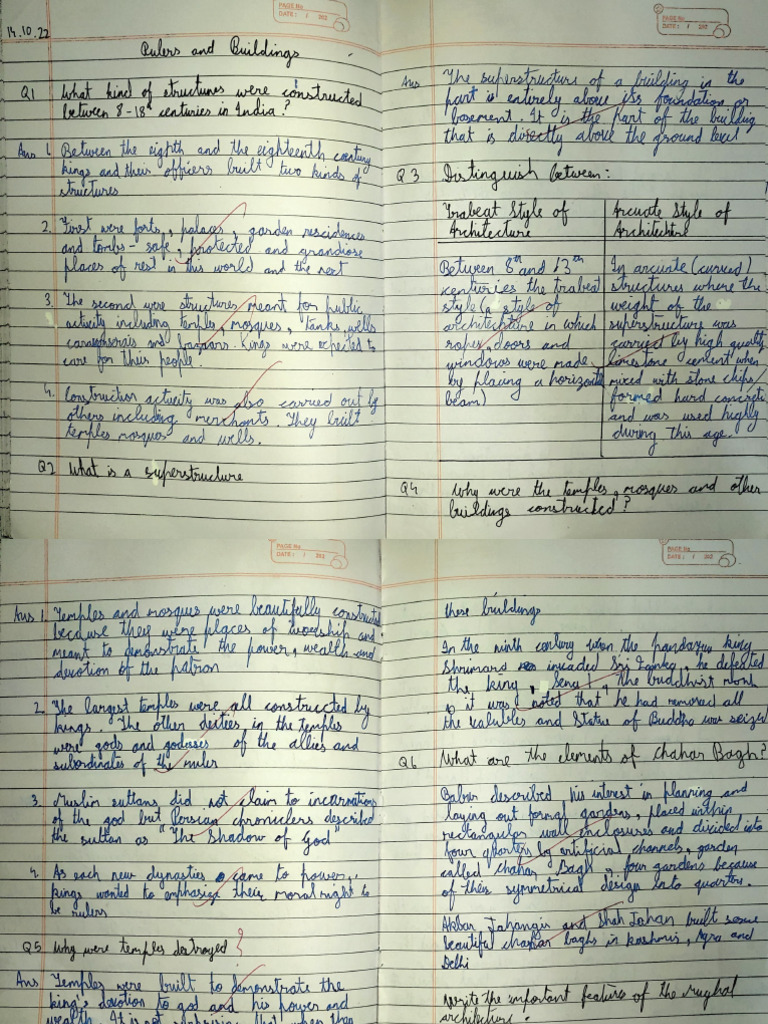 PAGE No
DATE: / / 202
14.10.22
Rulers and Buildings
Q1 What kind of structures were constructed
between 8-18th centuries in India?
Ans 1. Between the eighth and the eighteenth century
kings and their officers built two kinds of
structures
2. First were forts, palaces, garden rescidences
and tombs - safe, protected and grandiose
places of rest in this world and the next
3. The second were structures meant for public
activity including temples, mosques, tanks, wells
caravanserais and bazaars. Kings were expected to
care for their people.
4. Construction activity was also carried out by
others including merchants. They built
temples mosques and wells.
Q2 What is a superstructure
PAGE No
DATE: / / 202
Ans The superstructure of a building in the
part is entirely above its foundation or
basement. It is the part of the building
that is directly above the ground level
Q3 Distinguish between:
Trabeat Style of
Architecture
Between 8th and 13th
centuries the trabeat
style (a style of
architechture in which
doors and
windows were made
by placing a horizontal
beam)
Arcuate Style of
Architechture
In arcuate (curved)
structures where the
weight of the
superstructure was
carried by high quality
limestone cement when
mixed with stone chips
formed hard concrete
and was used highly
during this age.
Q4 Why were the temples, mosques and other
buildings constructed?
PAGE No
DATE: / / 202
Ans 1. Temples and mosques were beautifully constructed
because they were places of worship and
meant to demonstrate the power, wealth and
devotion of the patron
2. The largest temples were all constructed by
kings. The other deities in the temples
were gods and godesses of the allies and
subordinates of the ruler
3. Muslim sultans did not claim to incarnations
of the god but Persian chroniclers described
the sultan as "The Shadow of God"
4. As each new dynasties came to power,
kings wanted to emphasize their moral right to
be rulers
Q5 Why were temples destroyed?
Ans Temples were built to demonstrate the
king's devotion to god and his power and
wealth. It is not that when they
PAGE No
DATE: / / 202
these buildings
In the ninth century when the pandayan king
Shrimara invaded Sri Lanka, he defeated
the king, Sena I, the buddhist monk
it was noted that he had removed all
the valubles and Statue of Buddha was seized
Q6 What are the elements of chahar Bagh?
Babur described his interest in planning and
laying out formal gardens, placed within
rectangular wall enclosures and divided into
four quarters by artificial channels, garden
called chahar Bagh, four gardens because
of their symmetrical design into quarters.
Akbar Jahangir and Shah Jahan built some
beautiful chahar baghs in Kashmir, Agra and
Delhi
Write the important features of the mughal
architecture.